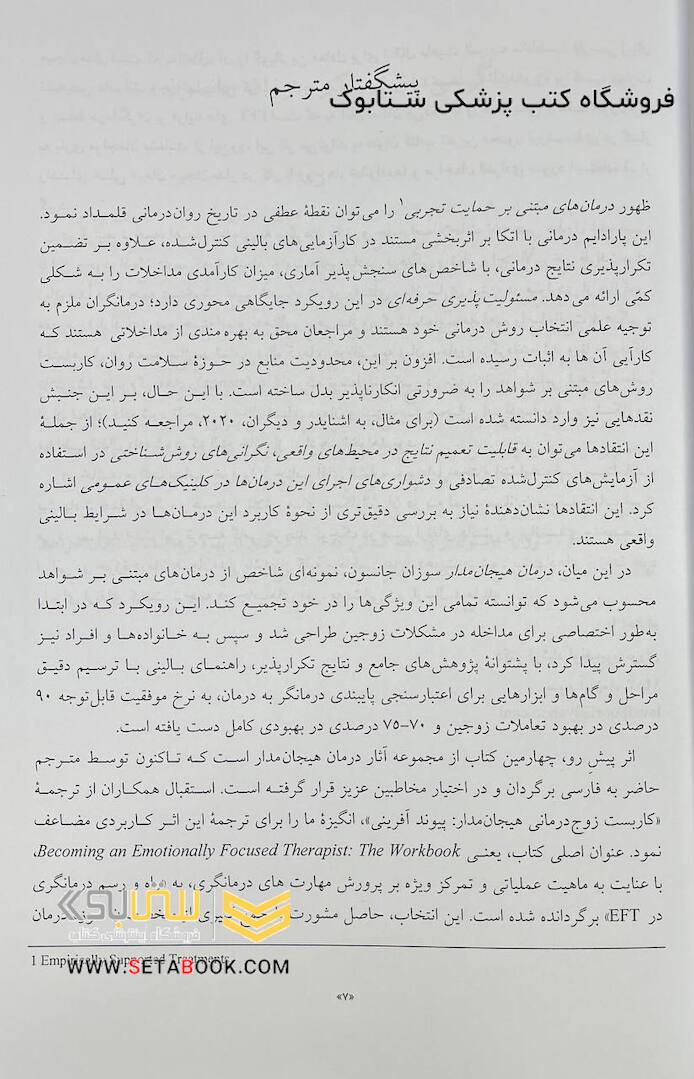 پیشگفتار مترجم
فروشگاه کتب پزشکی ستابوک
ظهور درمان‌های مبتنی بر حمایت تجربی۱ را می‌توان نقطهٔ عطفی در تاریخ روان‌درمانی قلمداد نمود.
این پارادایم درمانی با اتکا بر اثربخشی مستند در کارآزمایی‌های بالینی کنترل‌شده، علاوه بر تضمین
تکرارپذیری نتایج درمانی، با شاخص‌های سنجش‌پذیر آماری، میزان کارآمدی مداخلات را به شکلی
کمّی ارائه می‌دهد. مسئولیت‌پذیری حرفه‌ای در این رویکرد جایگاهی محوری دارد؛ درمانگران ملزم به
توجیه علمی انتخاب روش درمانی خود هستند و مراجعان محق به بهره‌مندی از مداخلاتی هستند که
کارآیی آن ها به اثبات رسیده است. افزون بر این، محدودیت منابع در حوزهٔ سلامت روان، کاربست
روش‌های مبتنی بر شواهد را به ضرورتی انکارناپذیر بدل ساخته است. با این حال، بر این جنبش
نقدهایی نیز وارد دانسته شده است (برای مثال، به اشنایدر و دیگران، ۲۰۲۰، مراجعه کنید)؛ از جملهٔ
این انتقادها می‌توان به قابلیت تعمیم نتایج در محیط‌های واقعی، نگرانی‌های روش‌شناختی در استفاده
از آزمایش‌های کنترل‌شده تصادفی و دشواری‌های اجرای این درمان‌ها در کلینیک‌های عمومی اشاره
کرد. این انتقادها نشان‌دهندهٔ نیاز به بررسی دقیق‌تری از نحوهٔ کاربرد این درمان‌ها در شرایط بالینی
واقعی هستند.
در این میان، درمان هیجان‌مدار سوزان جانسون، نمونه‌ای شاخص از درمان‌های مبتنی بر شواهد
محسوب می‌شود که توانسته تمامی این ویژگی‌ها را در خود تجمیع کند. این رویکرد که در ابتدا
به‌طور اختصاصی برای مداخله در مشکلات زوجین طراحی شد و سپس به خانواده‌ها و افراد نیز
گسترش پیدا کرد، با پشتوانهٔ پژوهش‌های جامع و نتایج تکرارپذیر، راهنمای بالینی با ترسیم دقیق
مراحل و گام‌ها و ابزارهایی برای اعتبارسنجی پایبندی درمانگر به درمان، به نرخ موفقیت قابل‌توجه ۹۰
درصدی در بهبود تعاملات زوجین و ۷۰–۷۵ درصدی در بهبودی کامل دست یافته است.
اثر پیش‌ِ رو، چهارمین کتاب از مجموعه آثار درمان هیجان‌مدار است که تاکنون توسط مترجم
حاضر به فارسی برگردان و در اختیار مخاطبین عزیز قرار گرفته است. استقبال همکاران از ترجمهٔ
«کاربست زوج‌درمانی هیجان‌مدار: پیوند آفرینی»، انگیزهٔ ما را برای ترجمهٔ این اثر کاربردی مضاعف
نمود. عنوان اصلی کتاب، یعنی Becoming an Emotionally Focused Therapist: The Workbook،
با عنایت به ماهیت عملیاتی و تمرکز ویژه بر پرورش مهارت های درمانگری، به «راه و رسم درمانگری
در EFT» برگردانده شده است. این انتخاب، حاصل مشورت با درمان
ستابوک
فروشگاه اینترنتی کتاب
1 Empirically Supported Treatments
WWW.SETABOOK.COM
«۷»